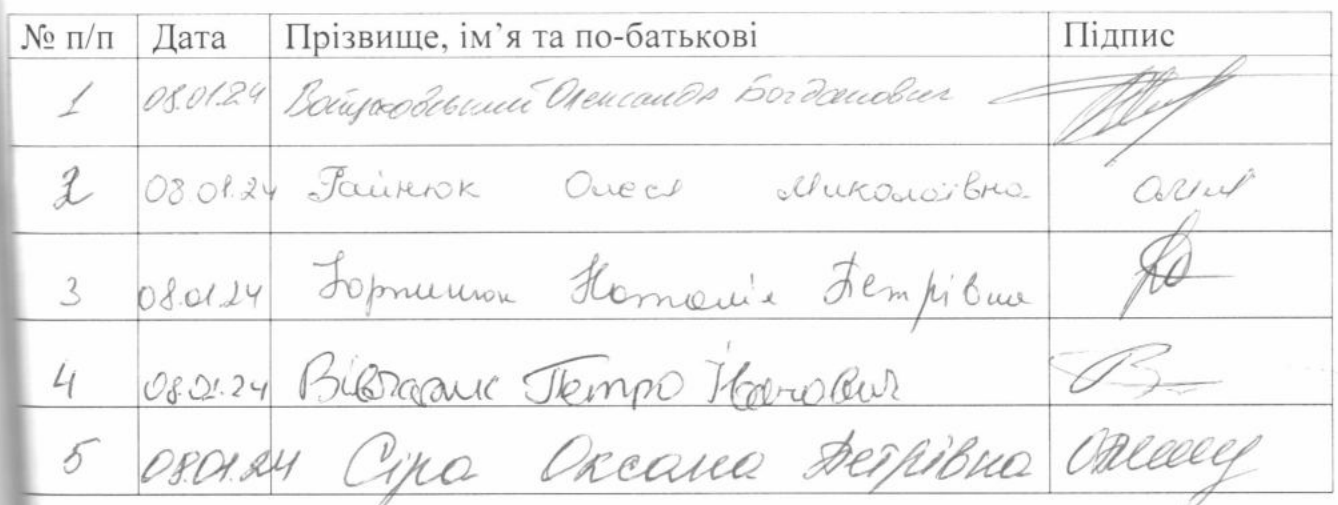 № п/п Дата Прізвище, ім’я та по-батькові Підпис
1 08.01.24 Олександр Богданович
2 08.01.24 Гайнюк Олеся Миколаївна
3 08.01.24 Наталія Петрівна
4 08.01.24 Петро Іванович
5 08.01.24 Сіра Оксана Петрівна